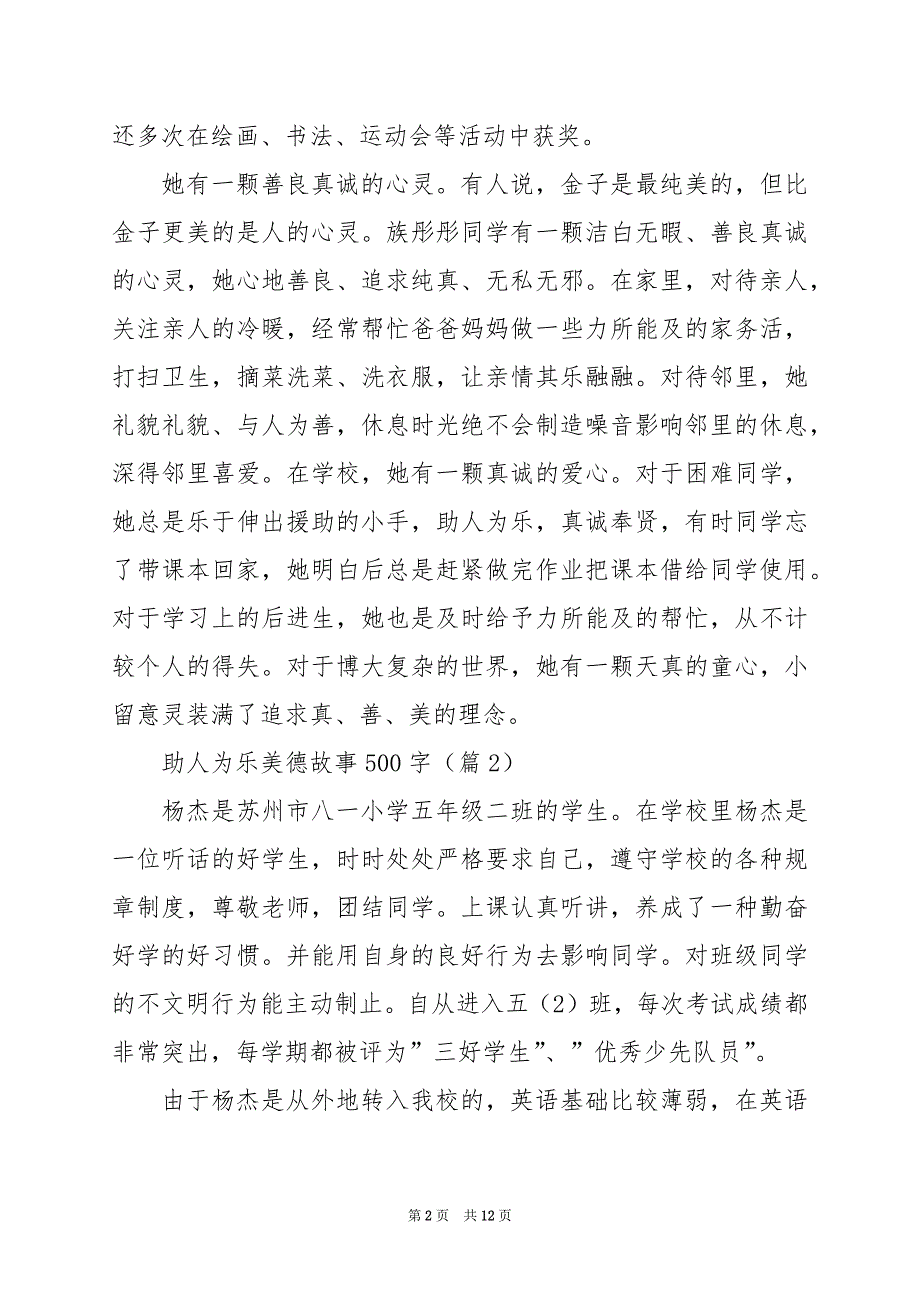 还多次在绘画、书法、运动会等活动中获奖。
她有一颗善良真诚的心灵。有人说，金子是最纯美的，但比
金子更美的是人的心灵。族彤彤同学有一颗洁白无暇、善良真诚
的心灵，她心地善良、追求纯真、无私无邪。在家里，对待亲人，
关注亲人的冷暖，经常帮忙爸爸妈妈做一些力所能及的家务活，
打扫卫生，摘菜洗菜、洗衣服，让亲情其乐融融。对待邻里，她
礼貌礼貌、与人为善，休息时光绝不会制造噪音影响邻里的休息，
深得邻里喜爱。在学校，她有一颗真诚的爱心。对于困难同学，
她总是乐于伸出援助的小手，助人为乐，真诚奉贤，有时同学忘
了带课本回家，她明白后总是赶紧做完作业把课本借给同学使用。
对于学习上的后进生，她也是及时给予力所能及的帮忙，从不计
较个人的得失。对于博大复杂的世界，她有一颗天真的童心，小
留意灵装满了追求真、善、美的理念。
助人为乐美德故事 500 字（篇 2）
杨杰是苏州市八一小学五年级二班的学生。在学校里杨杰是
一位听话的好学生，时时处处严格要求自己，遵守学校的各种规
章制度，尊敬老师，团结同学。上课认真听讲，养成了一种勤奋
好学的好习惯。并能用自身的良好行为去影响同学。对班级同学
的不文明行为能主动制止。自从进入五（2）班，每次考试成绩都
非常突出，每学期都被评为”三好学生”、”优秀少先队员”。
由于杨杰是从外地转入我校的，英语基础比较薄弱，在英语
第 2 页 共 12 页